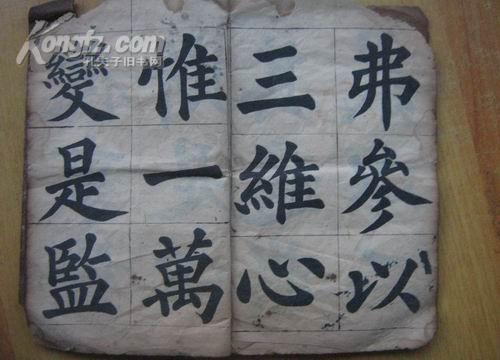 弗參以
三維心
惟一萬
變是監
Kongfz.com
孔夫子旧书网